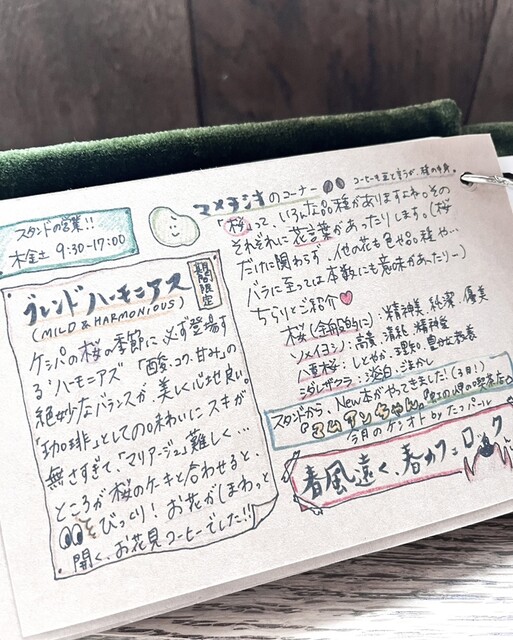 スタンドの営業!!
木金土 9:30-17:00
ブレンド ハーモニアス
(MILD & HARMONIOUS)
期間限定
ケシパの桜の季節に必ず登場す
る「ハーモニアス」「酸・コク・甘み」の
絶妙なバランスが、美しく心地良い。
「珈琲」としての味わいにスキが
無さすぎて、「マリアージュ」難しく…
ところが桜のケーキと合わせると、
びっくり! お花がしまわっと
開く、お花見コーヒーでした!!
マメラジオのコーナー
「桜」って、いろんな品種がありますよね。その
それぞれに花言葉があったりします。(桜
だけに関わらず、他の花も色や品種や…
バラに至っては本数にも意味があったりー)
ちらりとご紹介
桜(全般的に):精神美・純潔・優美
ソメイヨシノ:高貴・清純・精神美
八重桜:しとやか・理知・豊かな教養
シダレザクラ:淡白・ごまかし
スタンドから、New本がやってきました!(3日!)
今月のケシオト by たっパール
春風遠く、春がフ